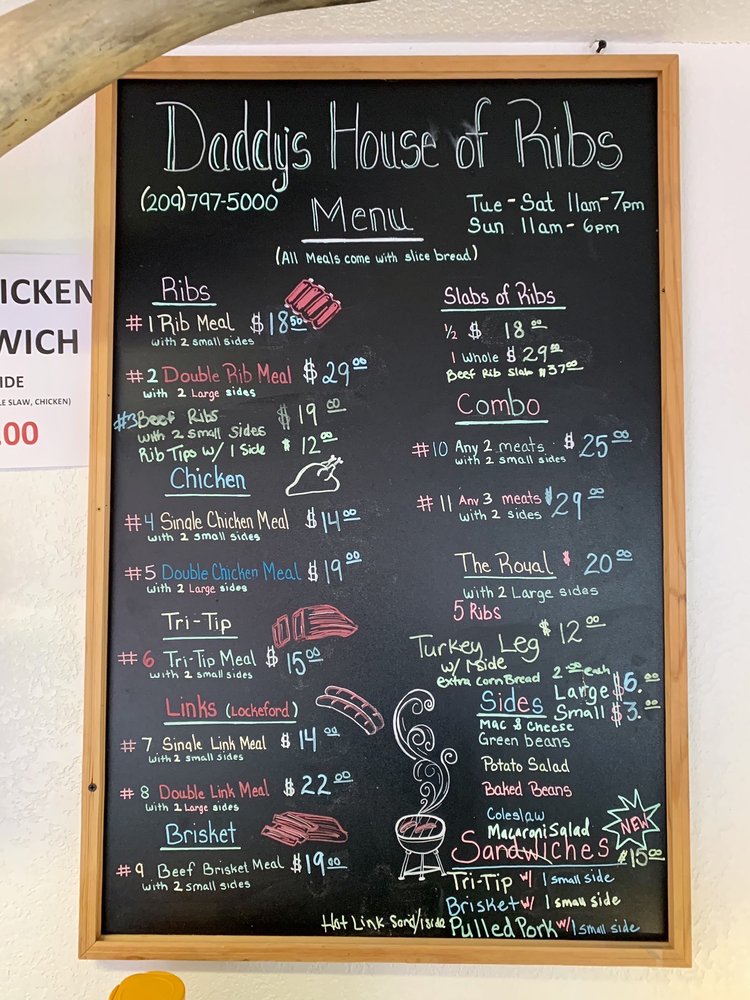 Daddy's House of Ribs
(209)797-5000
Menu
Tue - Sat 11am-7pm
Sun 11am - 6pm
(All Meals come with slice bread)
Ribs
#1 Rib Meal $18.50
with 2 small sides
#2 Double Rib Meal $29.00
with 2 Large sides
#3 Beef Ribs $19.00
with 2 small sides
Rib Tips w/ 1 Side $12.00
Chicken
#4 Single Chicken Meal $14.00
with 2 small sides
#5 Double Chicken Meal $19.00
with 2 Large sides
Tri-Tip
#6 Tri-Tip Meal $15.00
with 2 small sides
Links (Lockeford)
#7 Single Link Meal $14.00
with 2 small sides
#8 Double Link Meal $22.00
with 2 Large sides
Brisket
#9 Beef Brisket Meal $19.00
with 2 small sides
Slabs of Ribs
1/2 $ 18.00
1 Whole $29.00
Beef Rib Slab $37.00
Combo
#10 Any 2 meats $25.00
with 2 small sides
#11 Any 3 meats $29.00
with 2 sides
The Royal $20.00
with 2 Large sides
5 Ribs
Turkey Leg $12.00
w/ 1 side
extra corn Bread 2.00 each
Sides Large $6.00
Small $3.00
Mac & Cheese
Green beans
Potato Salad
Baked Beans
Coleslaw
Macaroni Salad
NEW
Sandwiches $15.00
Tri-Tip w/ 1 small side
Brisket w/ 1 small side
Hot Link Sand/1side
Pulled Pork w/ 1 small side
ICKEN
WICH
IDE
LE SLAW, CHICKEN)
.00